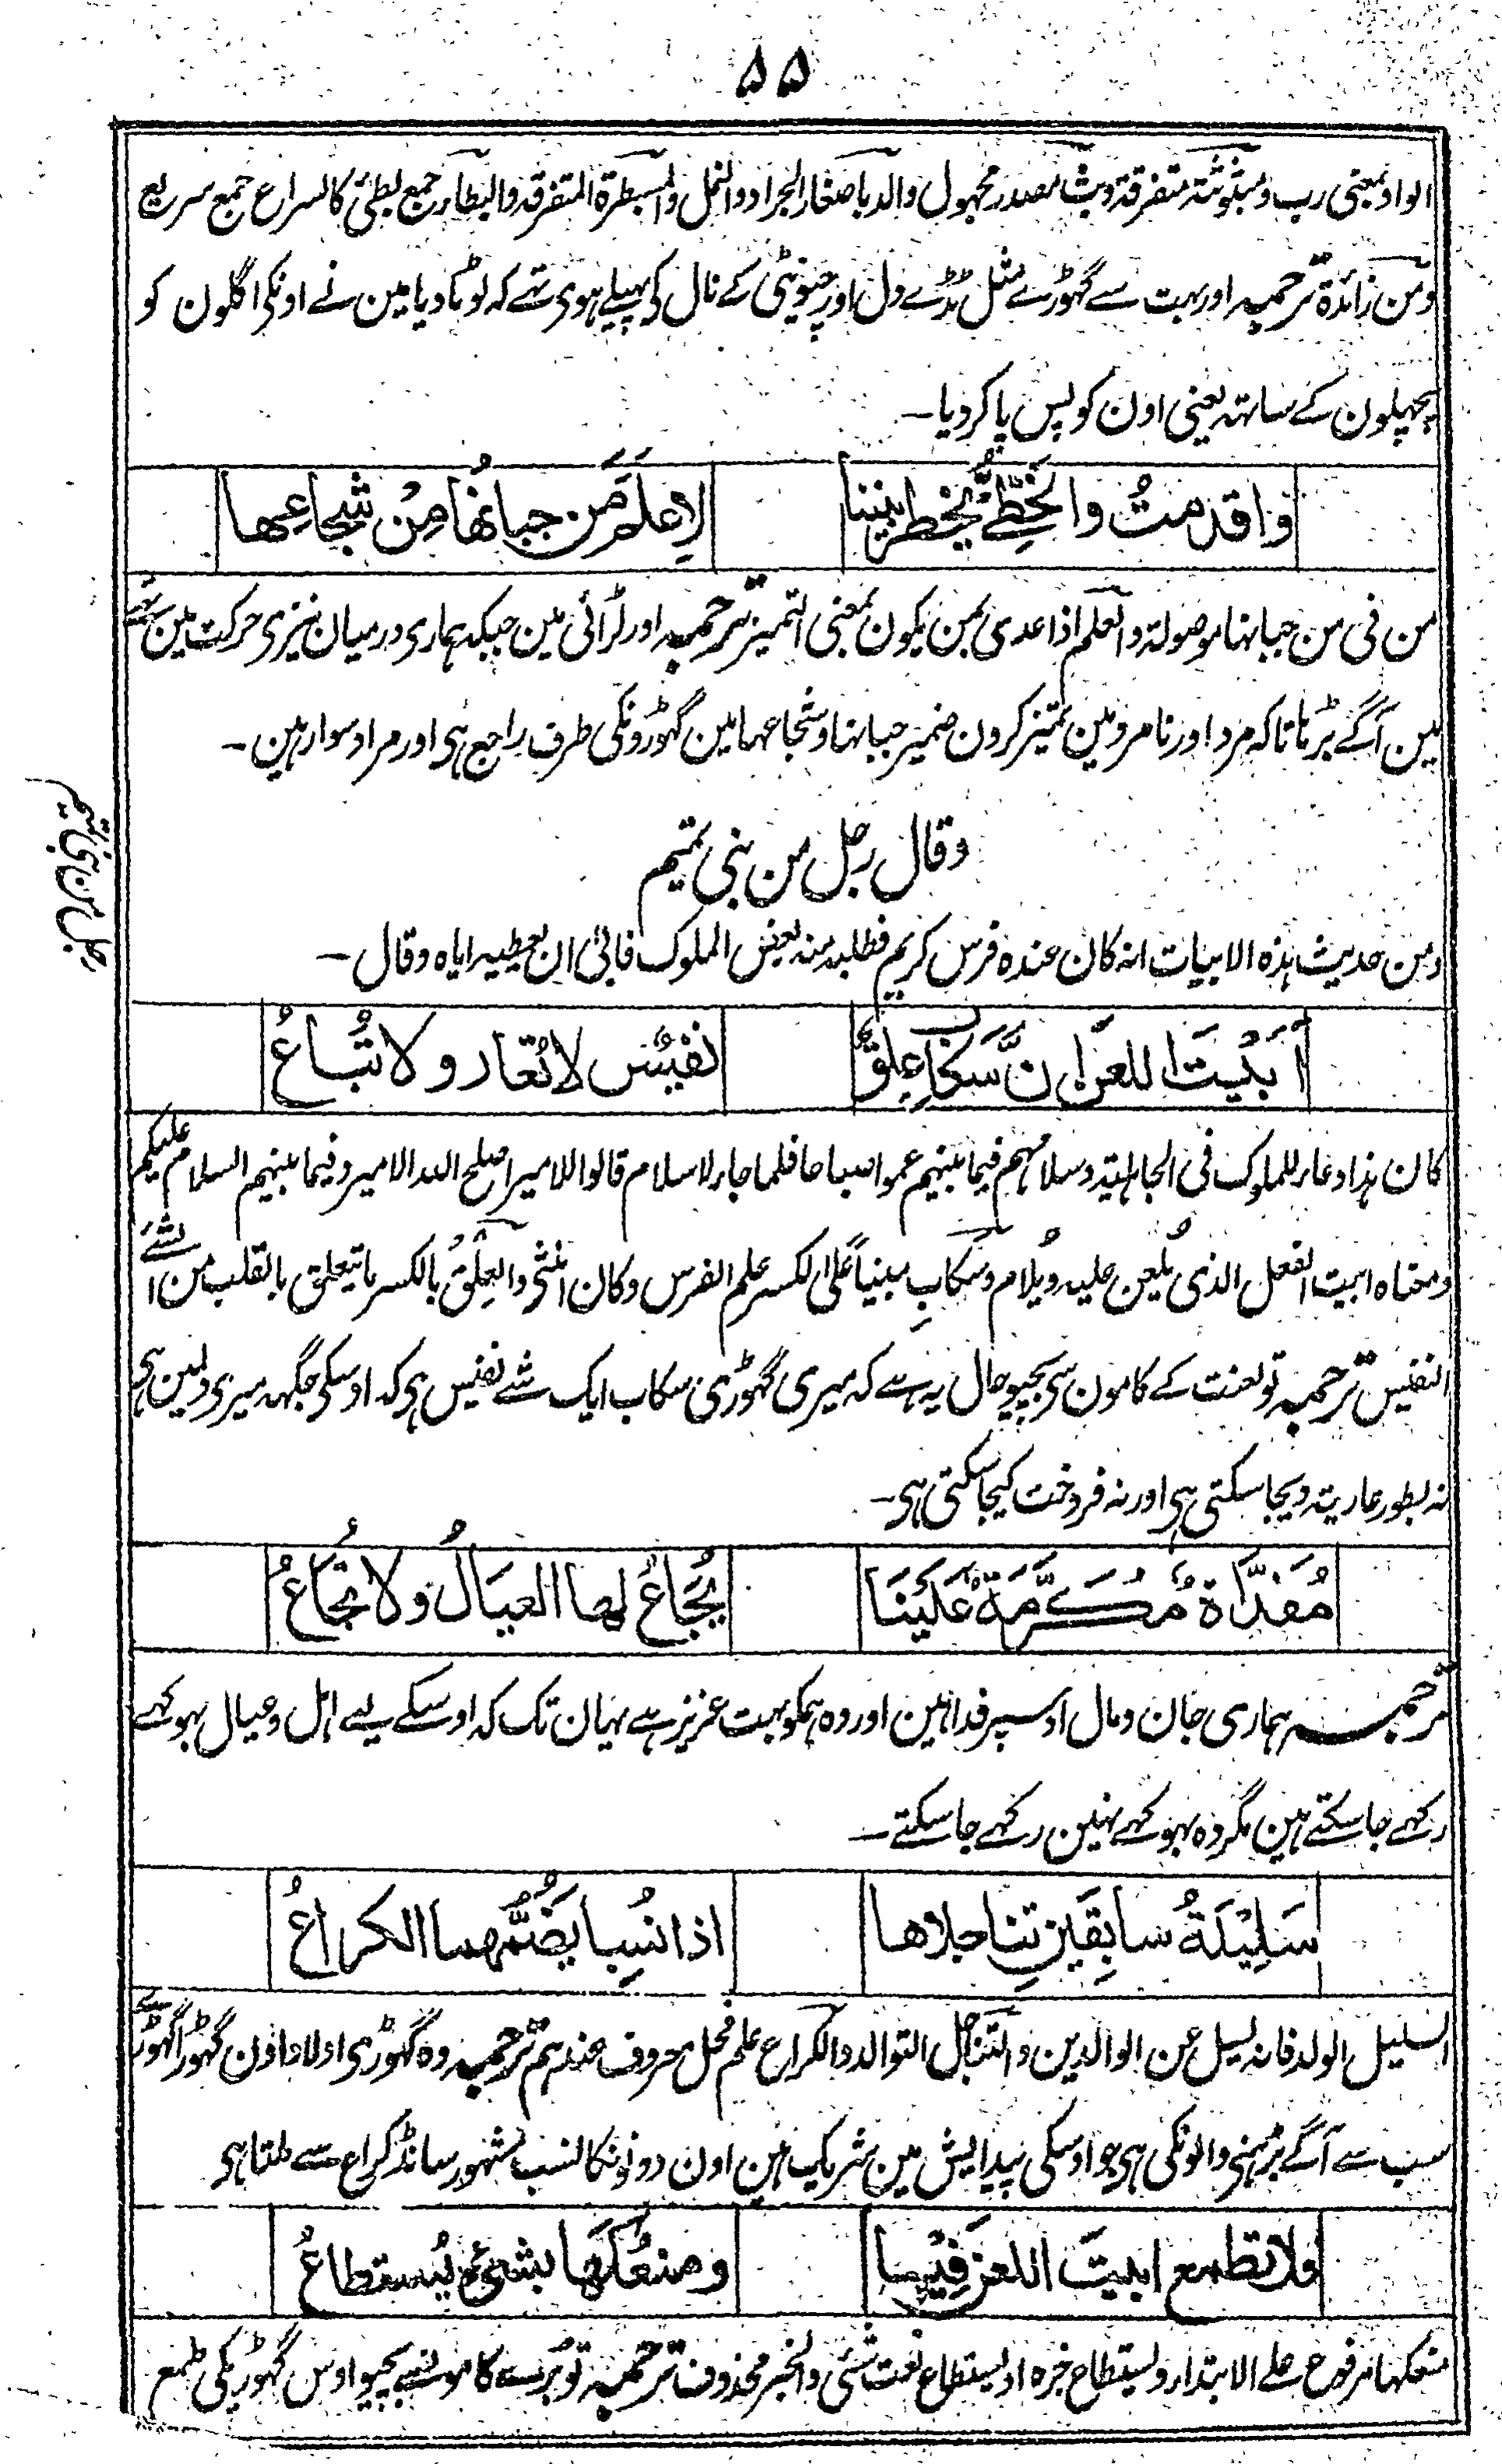 ۵۵
الواو بمعنی رب ومبثوثة متفرقة وبث مصدر مجهول والدبا صغار الجراد والنمل والمسبطرة المتفرقة والبطاء جمع بطئ کالسراع جمع سریع
ومن زائدة ترجمه اور بہت سے گہوڑے مثل ٹڈے دل اور چینوٹی کے نال کی پہیلے ہوی تہے کہ لوٹا دیا مین نے اونکی اگلون کو
پچہلون کے ساتہہ یعنی اون کو پس پا کردیا۔
واقدمتُ والخطِّیُّ یخطر بیننا لِاَعلمَ مَن جبانُها مِنْ شجاعِها
من فی من جبانها موصولة والعلم اذا عدی بمن یکون بمعنی التمیز ترجمه اور لڑائی مین جبکہ ہماری درمیان نیزی حرکت مین تہے
مین آگے بڑہا تاکہ مرد اور نامرد مین تمیز کرون ضمیر جبانها وشجاعها مین گہوڑونکی طرف راجع ہی اور مراد سوار ہین۔
وقال رجل من بنی تمیم
ومن حدیث هذه الابیات انه کان عنده فرس کریم فطلبه منه بعض الملوک فابی ان یعطیه ایاه وقال۔
أَبَیْتَ اللعنَ اِنَّ سَکابِ عِلقٌ نفیسٌ لا تُعار ولا تُباعُ
کان هذا دعاء للملوک فی الجاهلیة وسلامهم فیما بینهم عموا صباحا فلما جاء الاسلام قالوا للامیر اصلح الله الامیر وفیما بینهم السلام علیکم
ومعناه ابیت الفعل الذی یُلعن علیه ویُلام وسَکابِ مبنیا علی الکسر علم الفرس وکان انثی والعِلقُ بالکسر ما یتعلق بالقلب من الشئ
النفیس ترجمه تو لعنت کے کامون سی بچیو حال یہ ہے کہ میری گہوڑی سکاب ایک شے نفیس ہی کہ اوسکی جگہہ میری دلمین ہی
نہ بطور عاریتہ دیجا سکتی ہی اور نہ فروخت کیجا سکتی ہی۔
مُفَدَّاةٌ مُکَرَّمَةٌ عَلَیْنَا یُجَاعُ لها العیالُ ولا تُجَاعُ
ترجمہ ہماری جان و مال اوسپر فدا ہین اور وہ ہمکو بہت عزیز ہے یہان تک کہ اوسکے لیے اہل و عیال بہوکہے
رکہے جا سکتے ہین مگر وہ بہوکہے نہین رکہے جا سکتے۔
سَلِیْلَةُ سابِقَینِ تناجلاها اذا نُسِبا یضُمُّهما الکراعُ
السلیل الولد فانه یسل من الوالدین والتناجل التوالد والکراع علم فحل معروف عندهم ترجمه وہ گہوڑی اولاد اون گہوڑا گہوڑی
سب سے آگے بڑہنی والونکی ہی جو اوسکی پیدایش مین شریک ہین اون دونونکا نسب مشہور سانڈ کراع سے ملتا ہی
ولا تطمع ابیتَ اللعنَ فیها ومنعُکَها بشئٍ یُستطاعُ
منعکها مرفوع علے الابتداء ویستطاع خبره او یستطاع نعت شئی والخبر محذوف ترجمه تو برے کامونسے بچیو اوس گہوڑیکی طمع